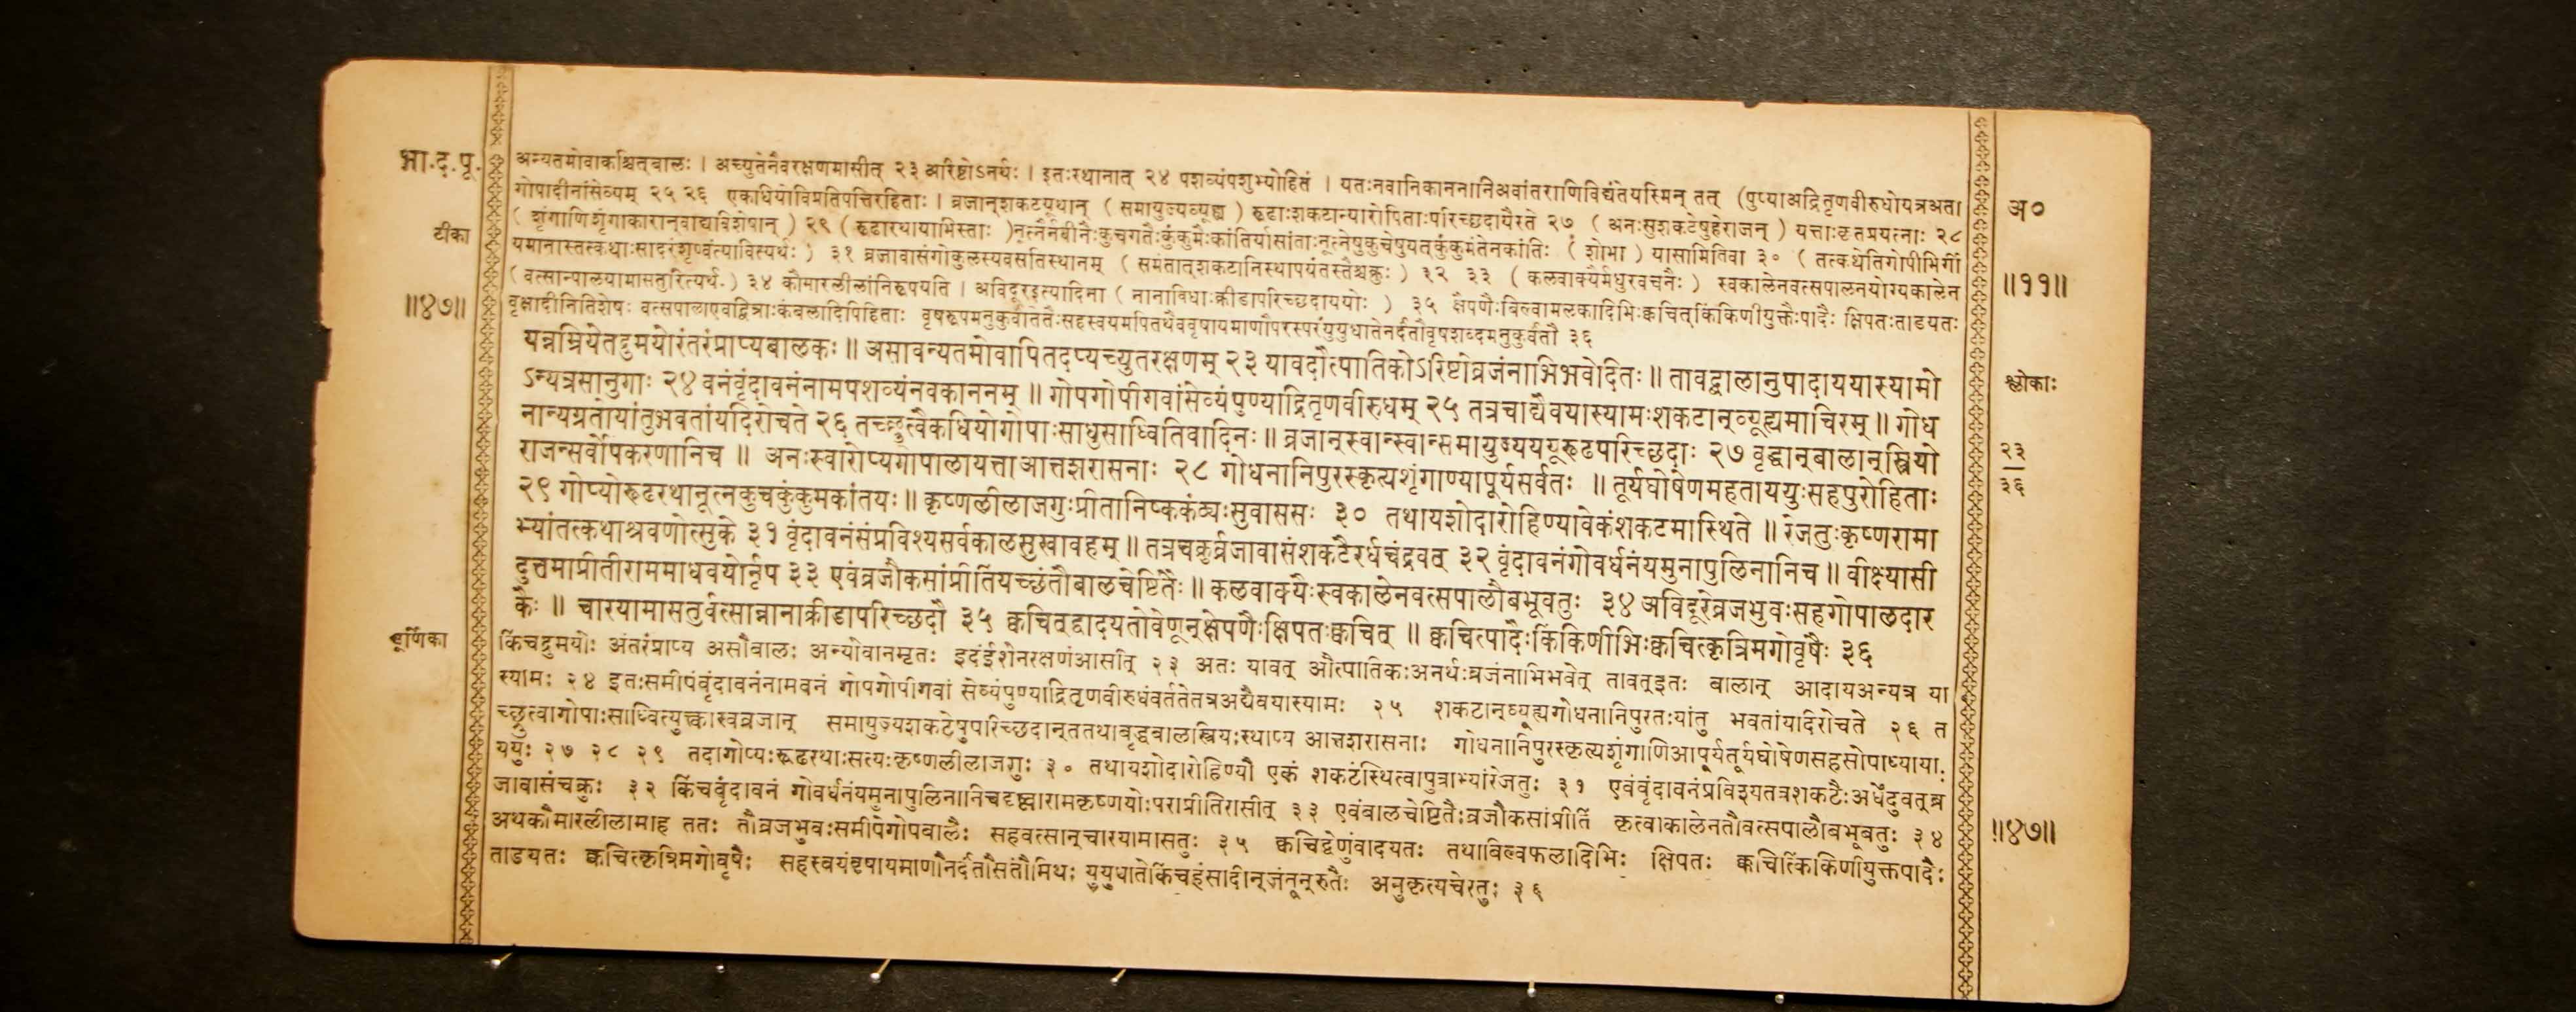 भा.द.पू.
टीका
॥४७॥
अन्यतमोवाकश्चित्बालः । अच्युतेनैवरक्षणमासीत् २३ अरिष्टोऽनर्थः । इतःस्थानात् २४ पशव्यंपशुभ्योहितं । यतःनवानिकाननानिअवांतराणिविद्यंतेयस्मिन् तत् (पुण्याअद्रितृणवीरुधोयत्रअतः।
गोपादीनांसेव्यम् २५ २६ एकाधियोविप्रतिपत्तिरहिताः । व्रजान्शकटयूथान् ( समायुज्यव्यूह्य ) रूढाःशकटान्यारोपिताःपरिच्छदायैस्ते २७ ( अनःसुशकटेषुहेराजन् ) यत्ताःकृतप्रयत्नाः २८
( शृंगाणिशृंगाकारान्वाद्यविशेषान् ) २९ ( रूढारथायाभिस्ताः )नूत्नैर्नवीनैःकुचगतैःकुंकुमैःकांतिर्यासांताःनूत्नेषुकुचेषुयत्कुंकुमंतेनकांतिः ( शोभा ) यासामितिवा ३० ( तत्कथेतिगोपीभिर्गी
यमानास्तत्कथाःसादरंशृण्वंत्यावित्यर्थः ) ३१ व्रजावासंगोकुलस्यवसतिस्थानम् ( समंतात्शकटानिस्थापयंतस्तैश्चक्रुः ) ३२ ३३ ( कलवाक्यैर्मधुरवचनैः ) स्वकालेनवत्सपालनयोग्यकालेन
( वत्सान्पालयामासतुरित्यर्थः ) ३४ कौमारलीलांनिरूपयति । अविदूरइत्यादिना ( नानाविधाःक्रीडापरिच्छदाययोः ) ३५ क्षेपणैःबिल्वामलकादिभिःक्वचित्किंकिणीयुक्तैःपादैः क्षिपतःताडयतः
वृक्षादीनितिशेषः वत्सपालाएवद्वित्राःकंबलादिपिहिताः वृषरूपमनुकुर्वंतितैःसहस्वयमपितथैववृषायमाणौपरस्परंयुयुधातेनर्दंतौवृषशब्दमनुकुर्वंतौ ३६
यन्नम्रियेतद्रुमयोरंतरंप्राप्यबालकः॥ असावन्यतमोवापितदप्यच्युतरक्षणम् २३ यावदौत्पातिकोऽरिष्टोव्रजंनाभिभवेदितः॥ तावद्बालानुपादाययास्यामो
ऽन्यत्रसानुगाः २४ वनंवृंदावनंनामपशव्यंनवकाननम् ॥ गोपगोपीगवांसेव्यंपुण्याद्रितृणवीरुधम् २५ तत्रचाद्यैवयास्यामःशकटान्व्यूह्यमाचिरम् ॥ गोध
नान्यग्रतोयांतुभवतांयदिरोचते २६ तच्छ्रुत्वैकधियोगोपाःसाधुसाध्वितिवादिनः॥ व्रजान्स्वान्स्वान्समायुज्यययूरूढपरिच्छदाः २७ वृद्धान्बालान्स्त्रियो
राजन्सर्वोपकरणानिच ॥ अनःस्वारोप्यगोपालायत्ताआत्तशरासनाः २८ गोधनानिपुरस्कृत्यशृंगाण्यापूर्यसर्वतः ॥ तूर्यघोषेणमहताययुःसहपुरोहिताः
२९ गोप्योरूढरथानूत्नकुचकुंकुमकांतयः॥ कृष्णलीलाजगुःप्रीतानिष्ककंठ्यःसुवाससः ३० तथायशोदारोहिण्यावेकंशकटमास्थिते ॥ रेजतुःकृष्णरामा
भ्यांतत्कथाश्रवणोत्सुके ३१ वृंदावनंसंप्रविश्यसर्वकालसुखावहम् ॥ तत्रचक्रुर्व्रजावासंशकटैरर्धचंद्रवत् ३२ वृंदावनंगोवर्धनंयमुनापुलिनानिच ॥ वीक्ष्यासी
दुत्तमाप्रीतीराममाधवयोर्नृप ३३ एवंव्रजौकसांप्रीतिंयच्छंतौबालचेष्टितैः॥ कलवाक्यैःस्वकालेनवत्सपालौबभूवतुः ३४ अविदूरेव्रजभुवःसहगोपालदार
कैः ॥ चारयामासतुर्वत्सान्नानाक्रीडापरिच्छदौ ३५ क्वचिद्वादयतोवेणून्क्षेपणैःक्षिपतःक्वचित् ॥ क्वचित्पादैःकिंकिणीभिःक्वचित्कृत्रिमगोवृषैः ३६
चूर्णिका
किंचद्रुमयोः अंतरंप्राप्य असौबालः अन्योवानमृतः इदंईशेनरक्षणंआसीत् २३ अतः यावत् औत्पातिकःअनर्थःव्रजंनाभिभवेत् तावत्इतः बालान् आदायअन्यत्र या
स्यामः २४ इतःसमीपंवृंदावनंनामवनं गोपगोपीगवां सेव्यंपुण्याद्रितृणवीरुधंवर्ततेतत्रअद्यैवयास्यामः २५ शकटान्व्यूह्यगोधनानिपुरतःयांतु भवतांयदिरोचते २६ त
च्छ्रुत्वागोपाःसाध्वित्युक्त्वास्वव्रजान् समायुज्यशकटेषुपरिच्छदान्ततथावृद्धबालस्त्रियःस्थाप्य आत्तशरासनाः गोधनानिपुरस्कृत्यशृंगाणिआपूर्यतूर्यघोषेणसहसोपाध्यायाः
ययुः २७ २८ २९ तदागोप्यःरूढरथाःसत्यःकृष्णलीलाजगुः ३० तथायशोदारोहिण्यौ एकं शकटंस्थित्वापुत्राभ्यांरेजतुः ३१ एवंवृंदावनंप्रविश्यतत्रशकटैःअर्धेंदुवत्व्र
जावासंचक्रुः ३२ किंचवृंदावनं गोवर्धनंयमुनापुलिनानिचदृष्ट्वारामकृष्णयोःपराप्रीतिरासीत् ३३ एवंबालचेष्टितैःव्रजौकसांप्रीतिं कृत्वाकालेनतौवत्सपालौबभूवतुः ३४
अथकौमारलीलामाह ततः तौव्रजभुवःसमीपेगोपबालैः सहवत्सान्चारयामासतुः ३५ क्वचिद्वेणुंवादयतः तथाबिल्वफलादिभिः क्षिपतः क्वचित्किंकिणीयुक्तपादैः
ताडयतः क्वचित्कृत्रिमगोवृषैः सहस्वयंवृषायमाणौनर्दंतौसंतौमिथः युयुधातेकिंचहंसादीन्जंतून्रुतैः अनुकृत्यचेरतुः ३६
अ०
॥११॥
श्लोकाः
२३
३६
॥४७॥